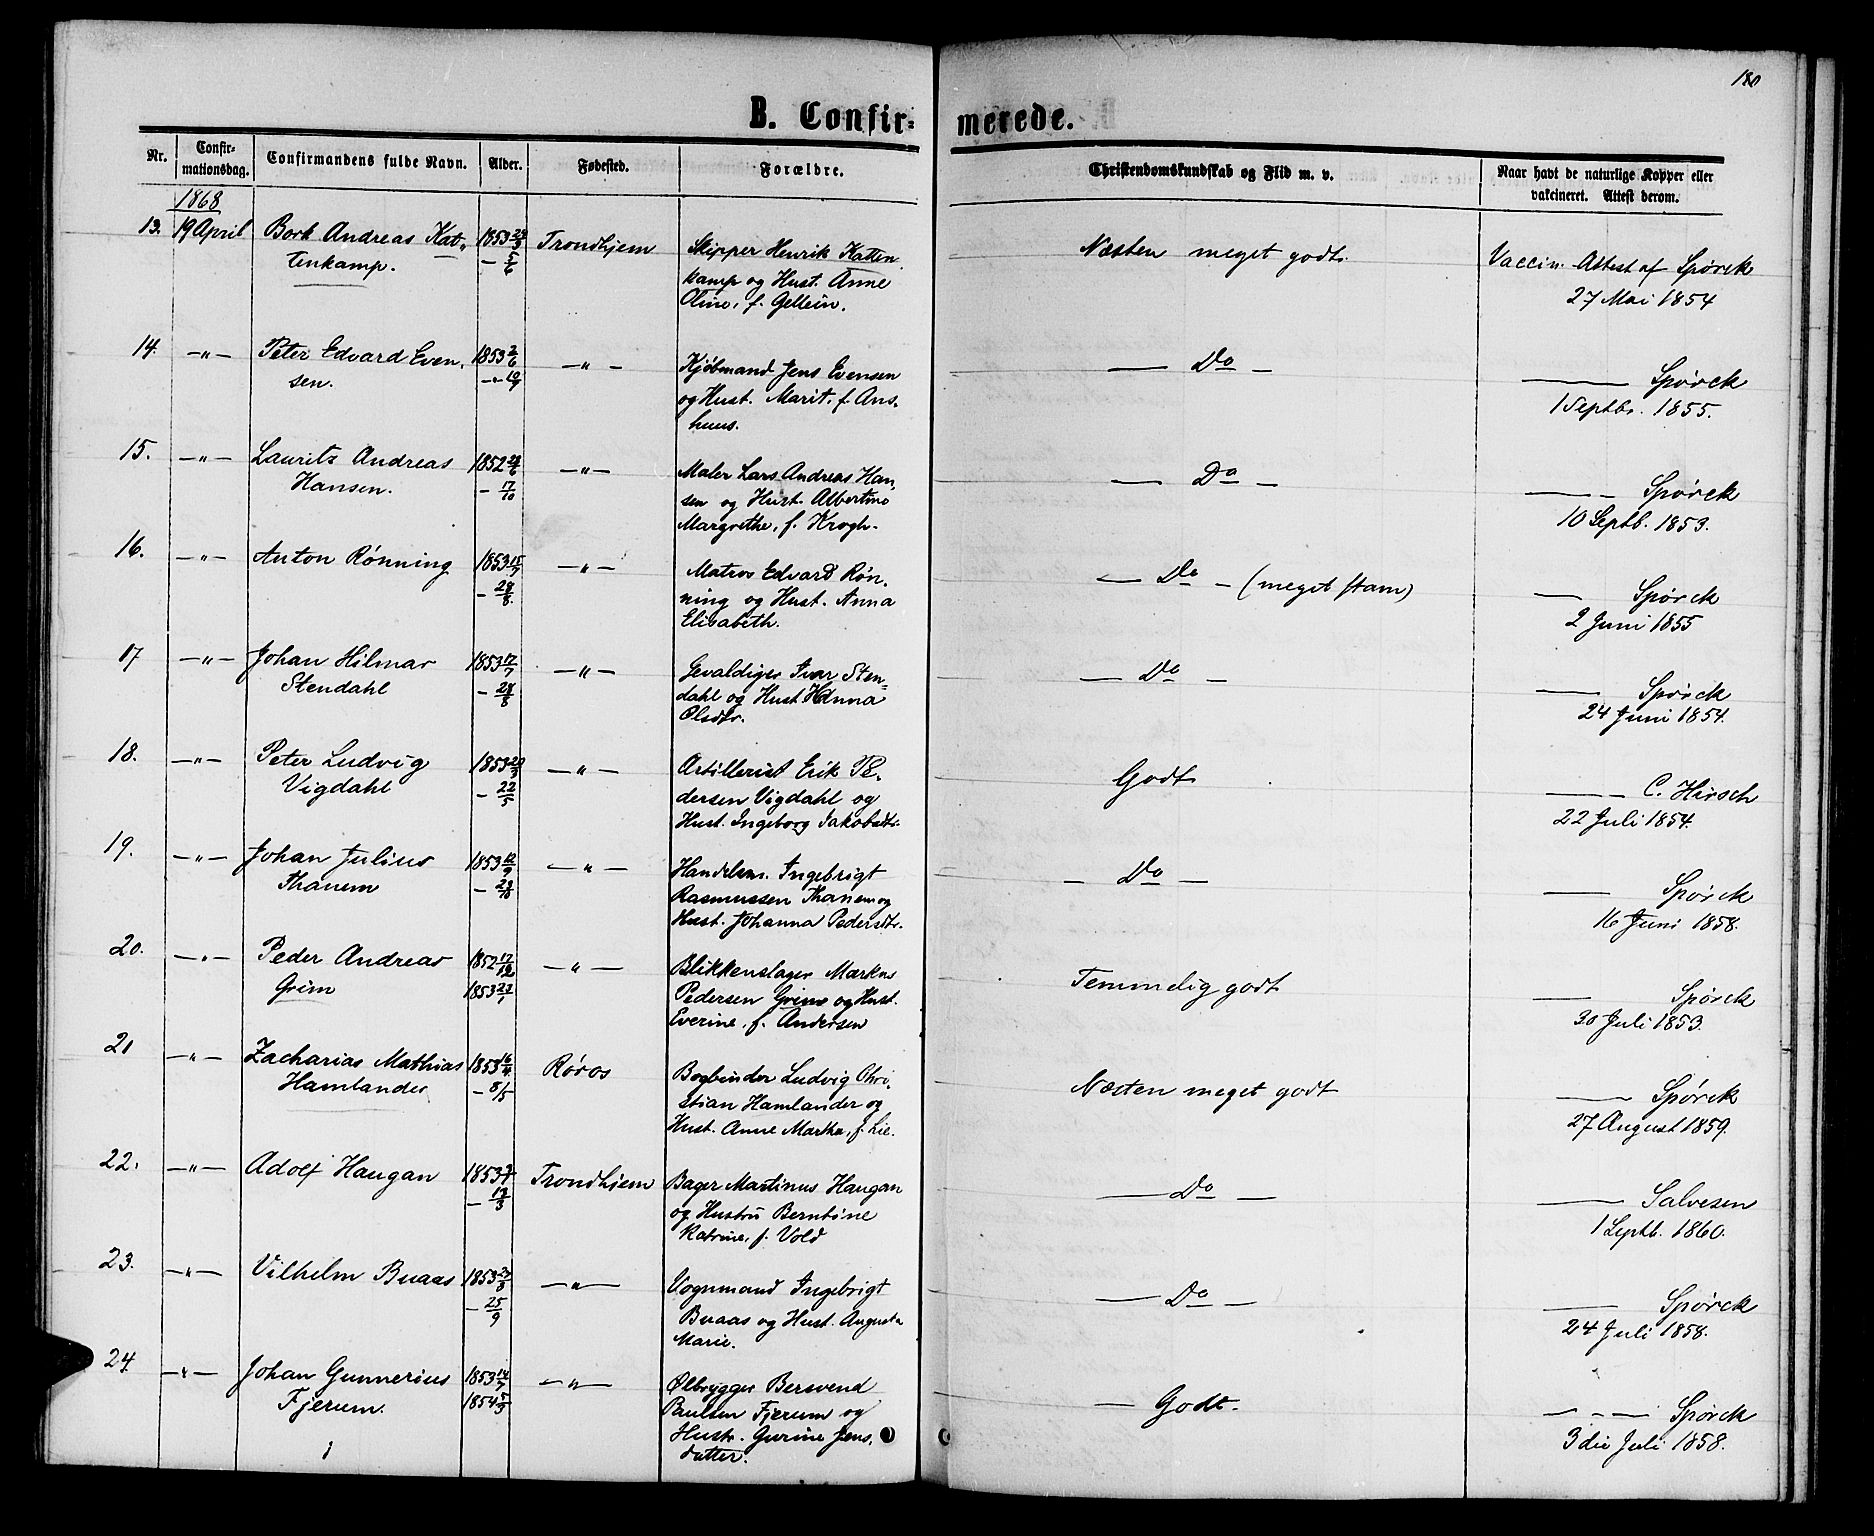 180
B. Confirmerede.
Nr. Confirmationsdag. Confirmandens fulde Navn. Alder. Fødested. Forældre. Christendomskundskab og Flid m. v. Naar havt de naturlige Kopper eller vakcineret. Attest derom.
1868
13. 19 April Bork Andreas Kat- 1853 Trondhjem Skipper Henrik Katten Næsten meget godt. Vaccin. Attest af Spörck
tenkamp. – 5/6 kamp og Hust. Anne 27 Mai 1854
Oline, f. Gellein.
14. –"– Peter Edvard Even, 1853 2/6 –"– Kjøbmand Jens Evensen — Do — — Spörck
sen. –"– 10/7 og Hust. Marit, f. Aus- 1 Septbr. 1855.
huus.
15. –"– Lauritz Andreas 1852 28/6 –"– Maler Lars Andreas Han, — Do — — Spörck
Hansen. – 17/10 sen og Hust. Albertine 10 Septb. 1853.
Margrethe, f. Krogh.
16. –"– Anton Rönning 1853 15/7 –"– Matros Edvard Røn, — Do – (meget stam) — Spörck
– 28/8 ning og Hust. Anna 2 Juni 1855
Elisabeth.
17 –"– Johan Hilmar 1853 17/7 –"– Gevaldiger Ivar Sten= — Do — — Spörck
Stendahl – 28/8 dahl og Hust Hanna 24 Juni 1854.
Olsdtr.
18. –"– Peter Ludvig 1853 –"– Artillerist Erik Pe- Godt — C. Hirsch
Vigdahl – 22/5 dersen Vigdahl og 22 Juli 1854.
Hust. Ingeborg Jakobsdtr.
19. –"– Johan Julius 1853 12/9 –"– Handelsm. Ingebrigt — Do — — Spörck
Thanem – 23/10 Rasmussen Thanem og 16 Juni 1858.
Hust. Johanna Pedersdtr.
20. –"– Peder Andreas 1852 17/12 –"– Blikkenslager Markus Temmelig godt — Spörck
Grim 1853 23/1 Pedersen Grim og Hust. 30 Juli 1853.
Everine, f. Andersen
21 –"– Zacharias Mathias 1853 16/4 Røros Bogbinder Ludvig Chri, Næsten meget godt — Spörck
Hamlander – 8/5 stian Hamlander og 27 August 1859.
Hust. Anne Martha, f. Lie.
22. –"– Adolf Haugan 1853 Trondhjem Bager Martinus Haugan — Do — — Salvesen
– 13/3 og Hustru Berntine 1 Septb. 1860.
Katrine, f. Vold
23. –"– Vilhelm Buaas 1853 27/8 –"– Vognmand Ingebrigt — Do — — Spörck
– 25/9 Buaas og Hust. Augusta 24 Juli 1858.
Marie.
24 –"– Johan Gunnerius 1853 14/7 –"– Ølbrygger Bersvend — Godt. — Spörck
Fjerum. 1854 5/3 Paulsen Fjerum og 3die Juli 1858.
Hustr. Gurine Jens,
datter.